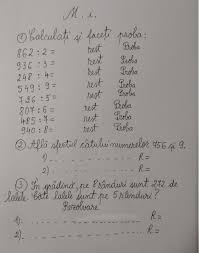 M. i.
① Calculați și faceți proba:
862 : 2 = rest Proba
936 : 3 = rest Proba
248 : 4 = rest Proba
549 : 9 = rest Proba
726 : 5 = rest Proba
807 : 6 = rest Proba
485 : 7 = rest Proba
940 : 8 = rest Proba
② Află sfertul câtului numerelor 756 și 9.
1) R =
2) R =
③ În grădină, pe 8 rânduri sunt 272 de
lalele. Câte lalele sunt pe 5 rânduri?
Rezolvare.
1) R =
2) R =